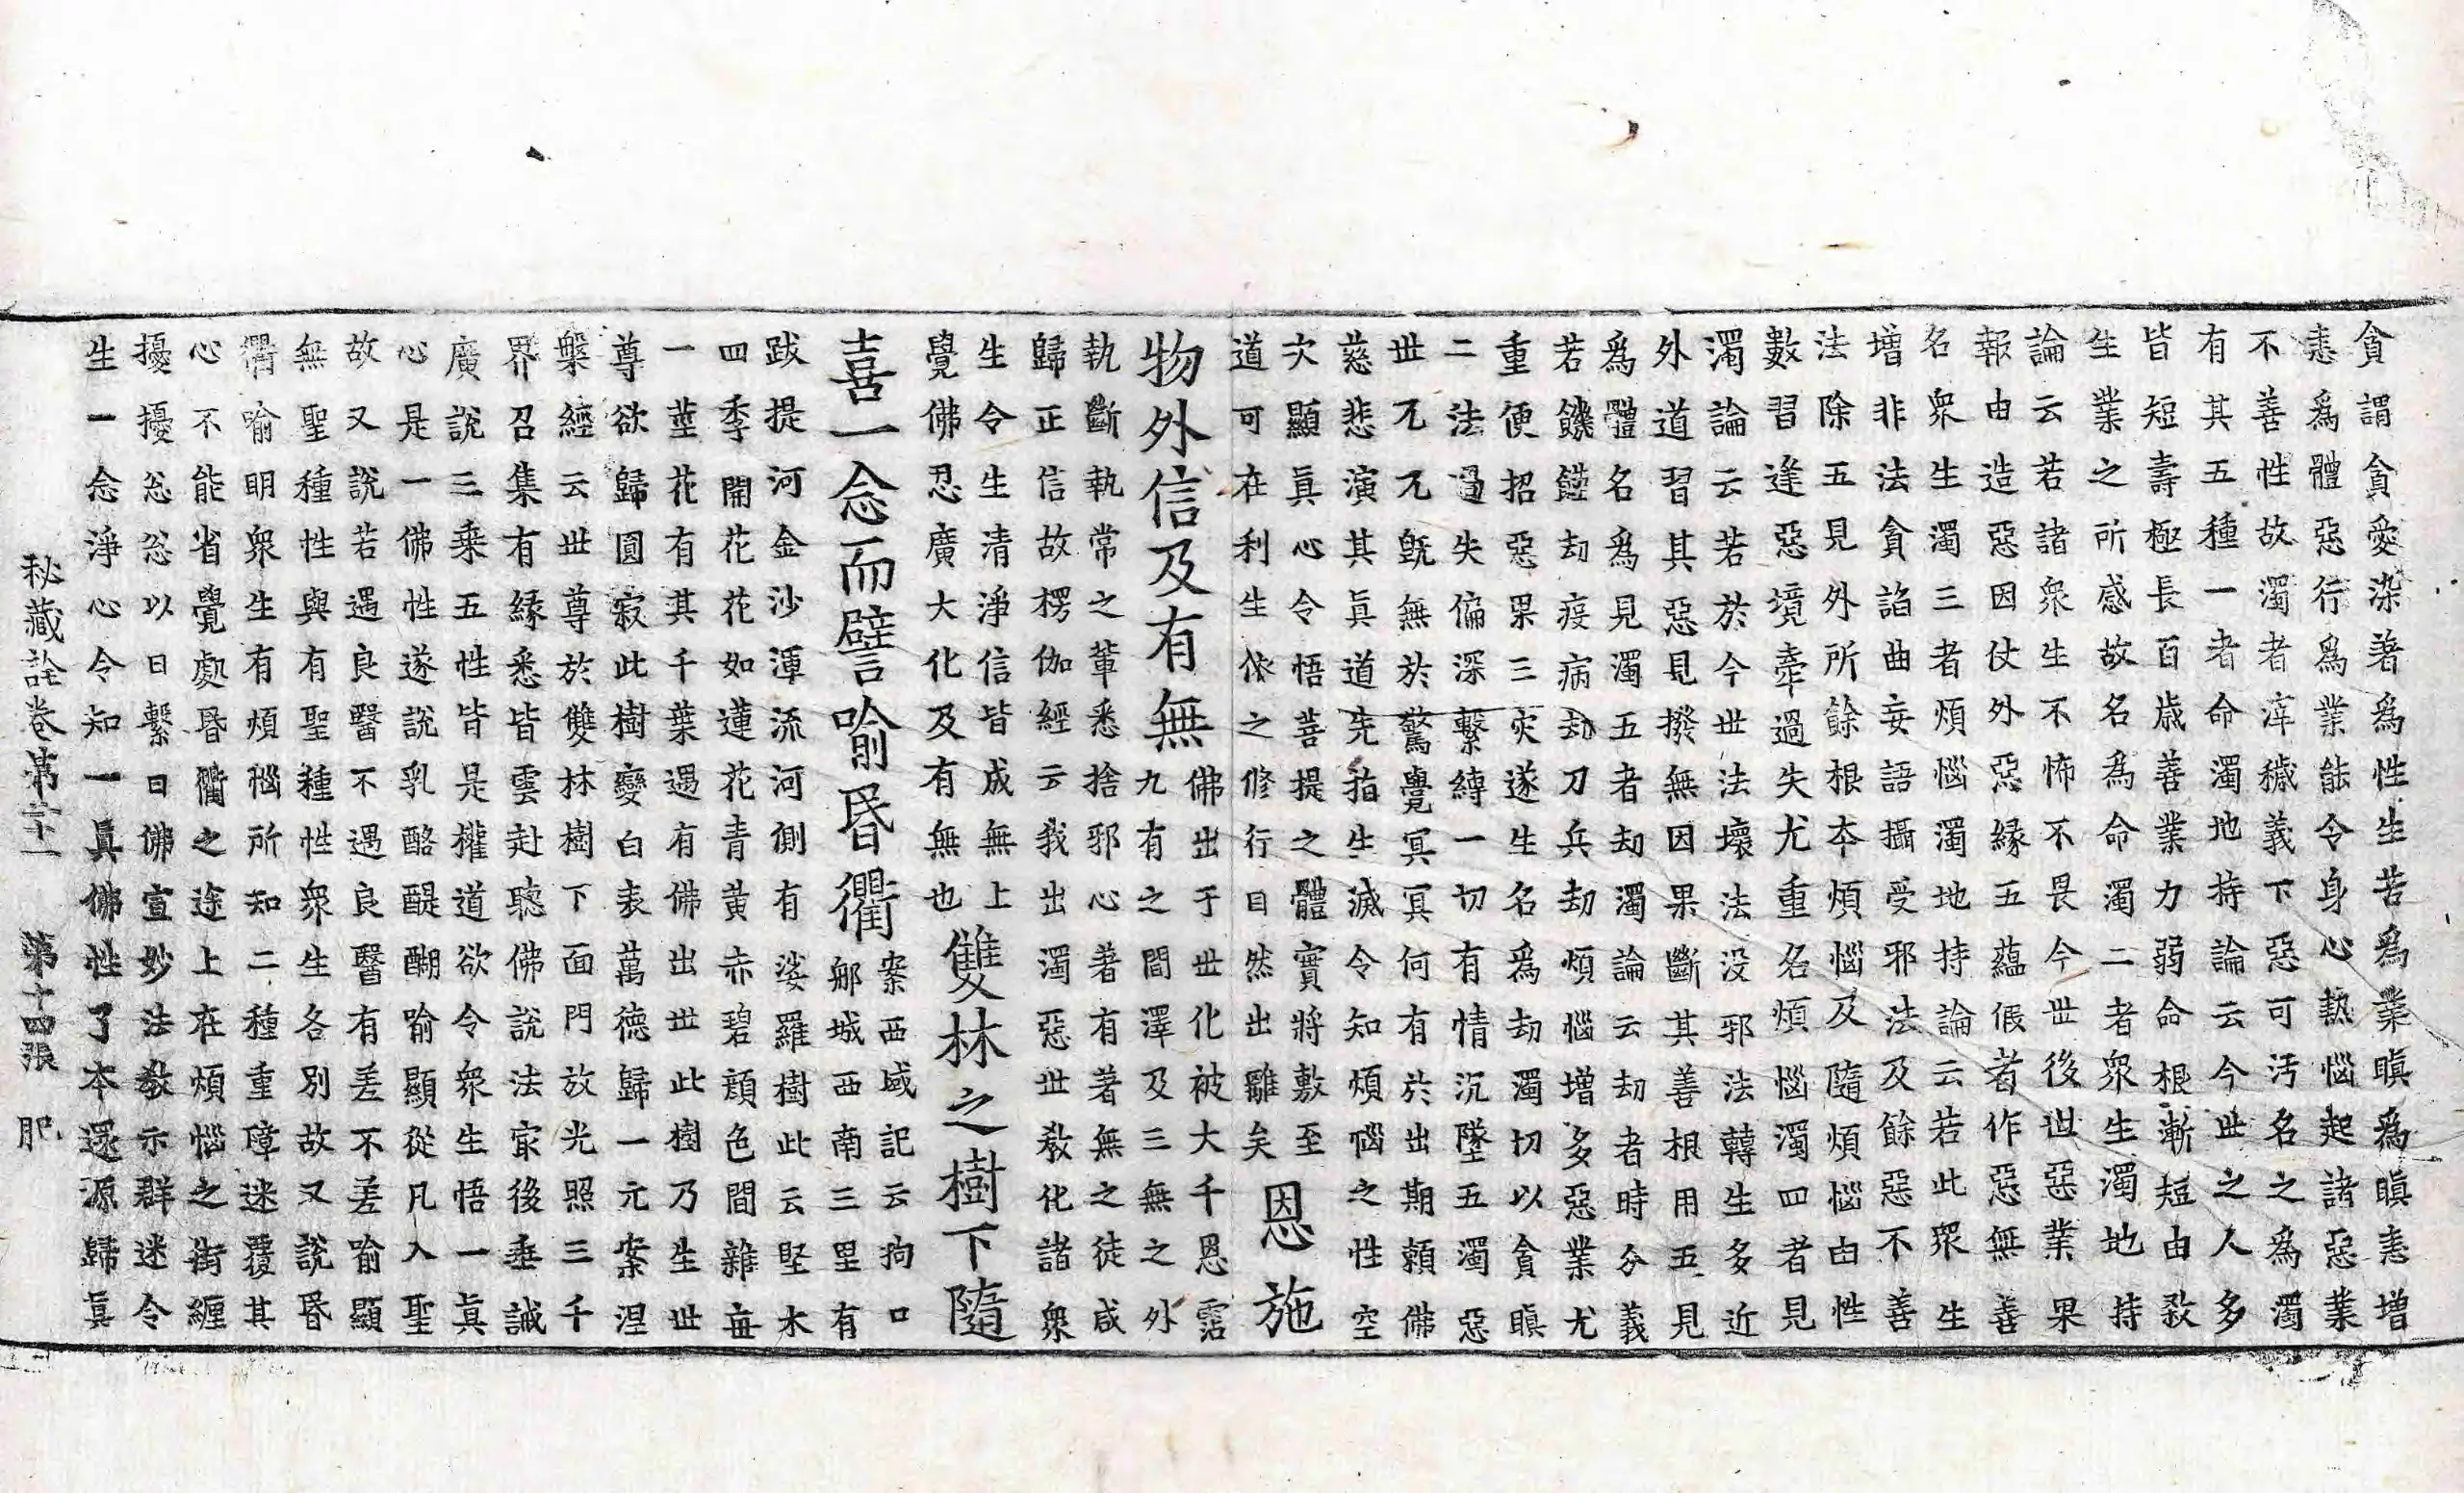 貪謂貪愛染著爲性生苦爲業瞋爲瞋恚增
恚爲體惡行爲業能令身心熱惱起諸惡業
不善性故濁者滓穢義下惡可汚名之爲濁
有其五種一者命濁地持論云今世之人多
皆短壽極長百歲善業力弱命根漸短由敎
生業之所感故名爲命濁二者衆生濁地持
論云若諸衆生不怖不畏今世後世惡業果
報由造惡因仗外惡緣五蘊假者作惡無善
名衆生濁三者煩惱濁地持論云若此衆生
增非法貪諂曲妄語攝受邪法及餘惡不善
法除五見外所餘根本煩惱及隨煩惱由性
數習逢惡境牽過失尤重名煩惱濁四者見
濁論云若於今世法壞法没邪法轉生多近
外道習其惡見撥無因果斷其善根用五見
爲體名爲見濁五者劫濁論云劫者時分義
若饑饉劫疫病劫刀兵劫煩惱增多惡業尤
重便招惡果三灾遂生名爲劫濁切以貪瞋
二法過失偏深繫縛一切有情沉墜五濁惡
世兀兀旣無於驚覺冥冥何有於出期賴佛
慈悲演其眞道先指生滅令知煩惱之性空
次顯眞心令悟菩提之體實將敷至
道可在利生依之修行日然出離矣
恩施
物外信及有無
佛出于世化被大千恩霑
九有之間澤及三無之外
執斷執常之輩悉捨邪心著有著無之徒咸
歸正信故楞伽經云我出濁惡世敎化諸衆
生令生清淨信皆成無上
覺佛忍廣大化及有無也
雙林之樹下隨
喜一念而譬喻昏衢
案西域記云拘口
郍城西南三里有
跋提河金沙潭流河側有娑羅樹此云堅木
四季開花花如蓮花青黃赤碧顔色間雜毎
一莖花有其千葉遇有佛出世此樹乃生世
尊欲歸圓寂此樹變白表萬德歸一元案涅
槃經云世尊於雙林樹下面門放光照三千
界召集有緣悉皆雲赴聽佛說法㝡後垂誡
廣說三乘五性皆是權道欲令衆生悟一眞
心是一佛性遂說乳酪醍醐喻顯從凡入聖
故又說若遇良醫不遇良醫有差不差喻顯
無聖種性與有聖種性衆生各別故又說昏
衢喻明衆生有煩惱所知二種重障迷覆其
心不能省覺處昏衢之途上在煩惱之街纏
擾擾忩忩以日繫日佛宣妙法敎示群迷令
生一念淨心令知一眞佛性了本還源歸眞
秘藏詮卷第二十一 第十四張 肥